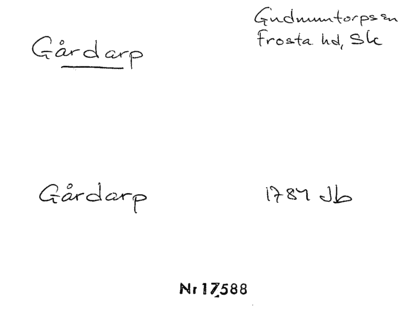 Gårdarp
Gudmuntorps sn
Frosta hd, Sk
Gårdarp
1784 Jb
Nr 17,588